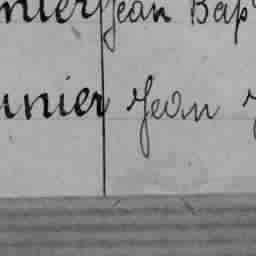 nier Jean Bap
unier Jean